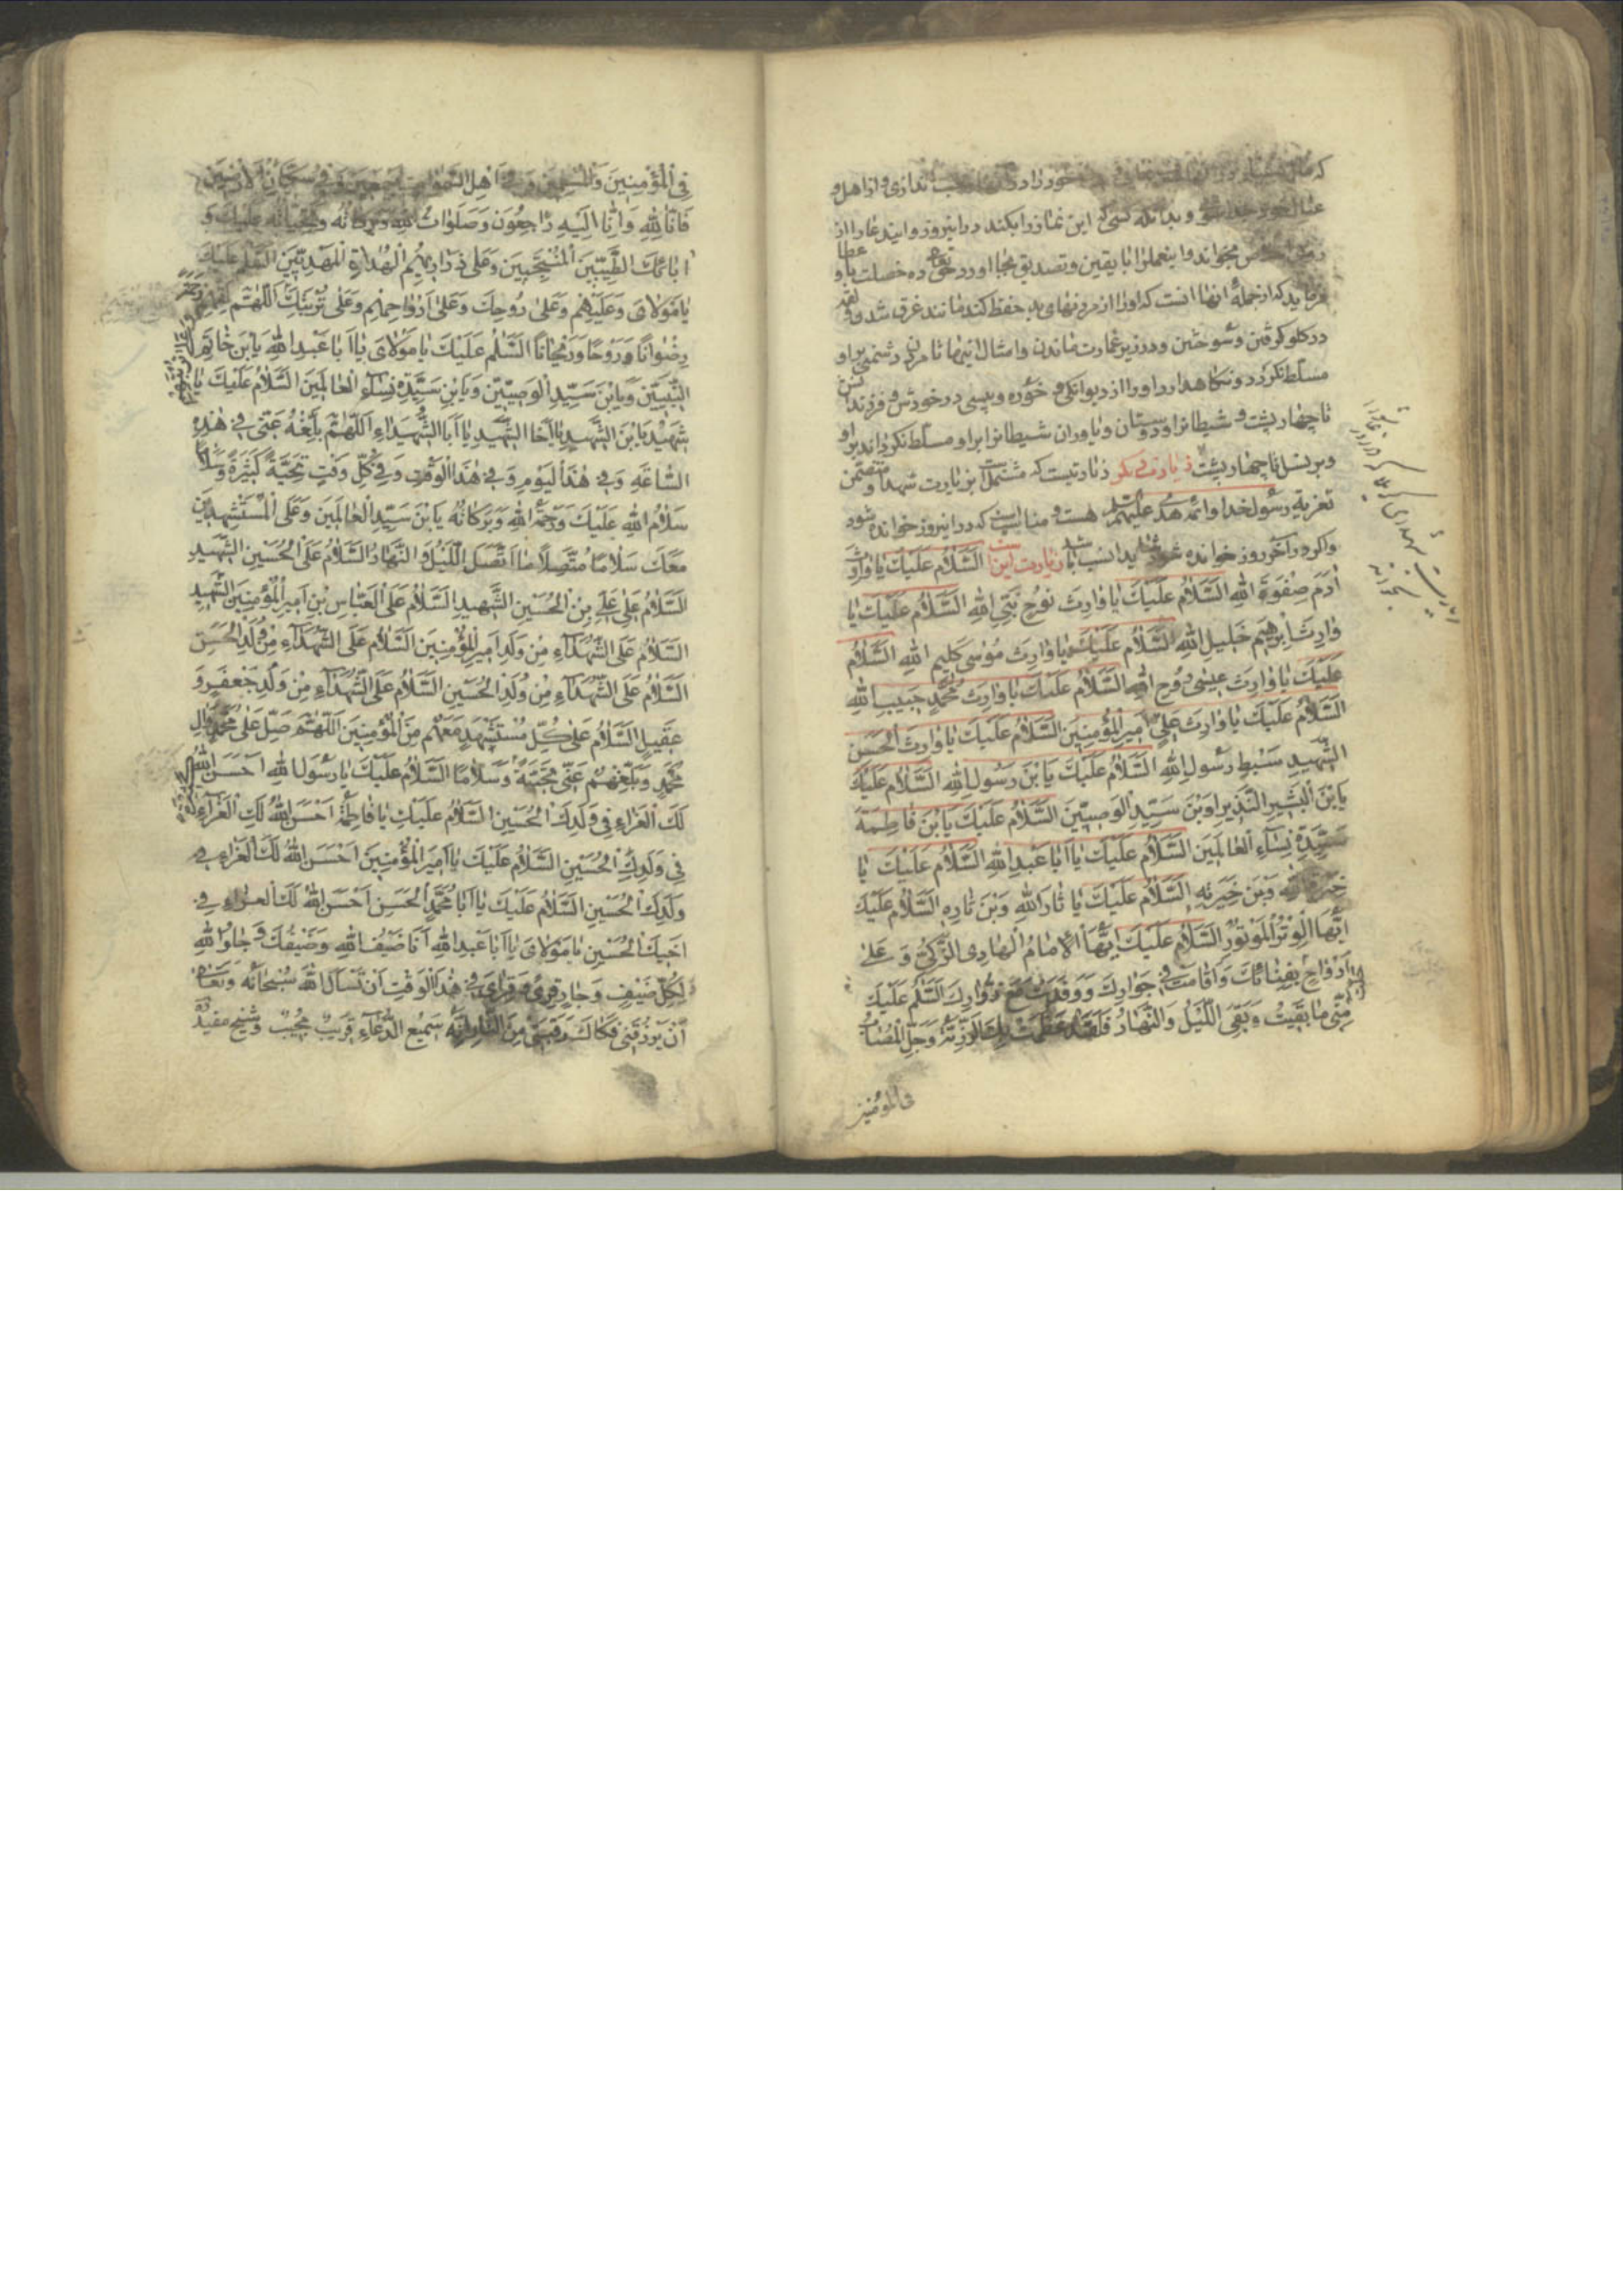 خود را در
عیال خود جدا شو و بدانکه کسی که این نماز را بکند در اینروز و ایندعا را از
بخواند و اینعمل را با یقین و تصدیق بجا اورد حق تعالی ده خصلت باو عطا
فرماید که از جملهٔ انها انست که او را از مردنهای بد حفظ کند مانند غرق شدن و لقمه
در کلو کرفتن و سوختن و در زیر عمارت ماندن و امثال اینها تا مردن دشمنی بر او
مسلط نکردد و نکاهدارد او را از دیوانکی و خوره و پیسی در خودش و فرزندانش
تا چهار پشت و شیطانرا و دوستان و یاوران شیطانرا بر او مسلط نکرداند و بر او
و بر نسل او تا چهار پشت زیارتی دیگر زیارتیست که مشتمل است بر زیارت شهدا و متضمن
تعزیهٔ رسول خدا و ائمه هدی علیهم السلم هست و مناسب است که در اینروز خوانده شود
و اکر در آخر روز خوانده شود شاید انسب باشد زیارت اینست السَّلامُ عَلَیْكَ یا وارِثَ
آدَمَ صِفْوَةِ اللهِ السَّلامُ عَلَیْكَ یا وارِثَ نُوحٍ نَبِیِّ اللهِ السَّلامُ عَلَیْكَ یا
وارِثَ اِبْرهیمَ خَلیلِ اللهِ السَّلامُ عَلَیْكَ یا وارِثَ مُوسی کَلیمِ اللهِ السَّلامُ
عَلَیْكَ یا وارِثَ عیسی رُوحِ اللهِ السَّلامُ عَلَیْكَ یا وارِثَ مُحَمَّدٍ حَبیبِ اللهِ
السَّلامُ عَلَیْكَ یا وارِثَ عَلِیٍّ اَمیرِ الْمُؤْمِنینَ السَّلامُ عَلَیْكَ یا وارِثَ الْحَسَنِ
الشَّهیدِ سِبْطِ رَسُولِ اللهِ السَّلامُ عَلَیْكَ یَابْنَ رَسُولِ اللهِ السَّلامُ عَلَیْكَ
یَابْنَ الْبَشیرِ النَّذیرِ وَبْنَ سَیِّدِ الْوَصِیّینَ السَّلامُ عَلَیْكَ یَابْنَ فاطِمَةَ
سَیِّدَةِ نِساءِ الْعالَمینَ السَّلامُ عَلَیْكَ یا اَبا عَبْدِ اللهِ السَّلامُ عَلَیْكَ یا
خِیَرَةَ اللهِ وَبْنَ خِیَرَتِهِ السَّلامُ عَلَیْكَ یا ثارَ اللهِ وَبْنَ ثارِهِ السَّلامُ عَلَیْكَ
اَیُّهَا الْوِتْرُ الْمَوْتُورُ السَّلامُ عَلَیْكَ اَیُّهَا الْاِمامُ الْهادِی الزَّکِیُّ وَ عَلی
اَرْواحٍ بِفِنائِكَ وَ اَقامَتْ فی جِوارِكَ وَ وَفَدَتْ مَعَ زُوّارِكَ السَّلَمُ عَلَیْكَ
مِنّی ما بَقیتُ وَ بَقِیَ اللَّیْلُ وَ النَّهارُ فَلَقَدْ عَظُمَتْ بِكَ الرَّزِیَّةُ وَ جَلَّ الْمُصابُ
فی المؤمنین
فِی الْمُؤْمِنینَ وَ الْمُسْلِمینَ وَ فی اَهْلِ السَّمواتِ اَجْمَعینَ وَ فی سُکّانِ الْاَرَضینَ
فَاِنّا لِلهِ وَ اِنّا اِلَیْهِ راجِعُونَ وَ صَلَواتُ اللهِ وَ بَرَکاتُهُ وَ تَحِیّاتُهُ عَلَیْكَ وَ
ابائِكَ الطَّیِّبینَ الْمُنْتَجَبینَ وَ عَلی ذَراریهِمُ الْهُداةِ الْمَهْدِیّینَ السَّلَمُ عَلَیْكَ
یا مَوْلایَ وَ عَلَیْهِمْ وَ عَلی رُوحِكَ وَ عَلی اَرْواحِهِمْ وَ عَلی تُرْبَتِكَ اَللّهُمَّ لَقِّهِمْ رَحْمَةً
رِضْوانًا وَ رَوْحًا وَ رَیْحانًا السَّلَمُ عَلَیْكَ یا مَوْلایَ یا اَبا عَبْدِ اللهِ یَابْنَ خاتَمِ
النَّبِیّینَ وَ یَابْنَ سَیِّدِ الْوَصِیّینَ وَ یَابْنَ سَیِّدَةِ نِساءِ الْعالَمینَ السَّلامُ عَلَیْكَ یا
شَهیدُ یَابْنَ الشَّهیدِ یا اَخَا الشَّهیدِ یا اَبَا الشُّهَداءِ اَللّهُمَّ بَلِّغْهُ عَنّی فی هذِهِ
السّاعَةِ وَ فی هذَا الْیَوْمِ وَ فی هذَا الْوَقْتِ وَ فی کُلِّ وَقْتٍ تَحِیَّةً کَثیرَةً وَ سَلامًا
سَلامُ اللهِ عَلَیْكَ وَ رَحْمَةُ اللهِ وَ بَرَکاتُهُ یَابْنَ سَیِّدِ الْعالَمینَ وَ عَلَی الْمُسْتَشْهَدینَ
مَعَكَ سَلامًا مُتَّصِلًا مَا اتَّصَلَ اللَّیْلُ وَ النَّهارُ السَّلامُ عَلَی الْحُسَیْنِ الشَّهیدِ
السَّلامُ عَلی عَلِیِّ بْنِ الْحُسَیْنِ الشَّهیدِ السَّلامُ عَلَی الْعَبّاسِ بْنِ اَمیرِ الْمُؤْمِنینَ الشَّهیدِ
السَّلامُ عَلَی الشُّهَداءِ مِنْ وُلْدِ اَمیرِ الْمُؤْمِنینَ السَّلامُ عَلَی الشُّهَداءِ مِنْ وُلْدِ الْحَسَنِ
السَّلامُ عَلَی الشُّهَداءِ مِنْ وُلْدِ الْحُسَیْنِ السَّلامُ عَلَی الشُّهَداءِ مِنْ وُلْدِ جَعْفَرٍ وَ
عَقیلٍ السَّلامُ عَلی کُلِّ مُسْتَشْهَدٍ مَعَهُمْ مِنَ الْمُؤْمِنینَ اَللّهُمَّ صَلِّ عَلی مُحَمَّدٍ وَ الِ
مُحَمَّدٍ وَ بَلِّغْهُمْ عَنّی تَحِیَّةً وَ سَلامًا السَّلامُ عَلَیْكَ یا رَسُولَ اللهِ اَحْسَنَ اللهُ
لَكَ الْعَزاءَ فی وَلَدِكَ الْحُسَیْنِ السَّلامُ عَلَیْكِ یا فاطِمَةُ اَحْسَنَ اللهُ لَكِ الْعَزاءَ
فی وَلَدِكِ الْحُسَیْنِ السَّلامُ عَلَیْكَ یا اَمیرَ الْمُؤْمِنینَ اَحْسَنَ اللهُ لَكَ الْعَزاءَ فی
وَلَدِكَ الْحُسَیْنِ السَّلامُ عَلَیْكَ یا اَبا مُحَمَّدٍ الْحَسَنِ اَحْسَنَ اللهُ لَكَ الْعَزاءَ فی
اَخیكَ الْحُسَیْنِ یا مَوْلایَ یا اَبا عَبْدِ اللهِ اَنَا ضَیْفُ اللهِ وَ ضَیْفُكَ وَ جارُ اللهِ
لِکُلِّ ضَیْفٍ وَ جارٍ قِریً وَ قِرایَ فی هذَا الْوَقْتِ اَنْ تَسْاَلَ اللهَ سُبْحانَهُ وَ تَعالی
اَنْ یَرْزُقَنی فَکاكَ رَقَبَتی مِنَ النّارِ اِنَّهُ سَمیعُ الدُّعاءِ قَریبٌ مُجیبٌ و شیخ مفید